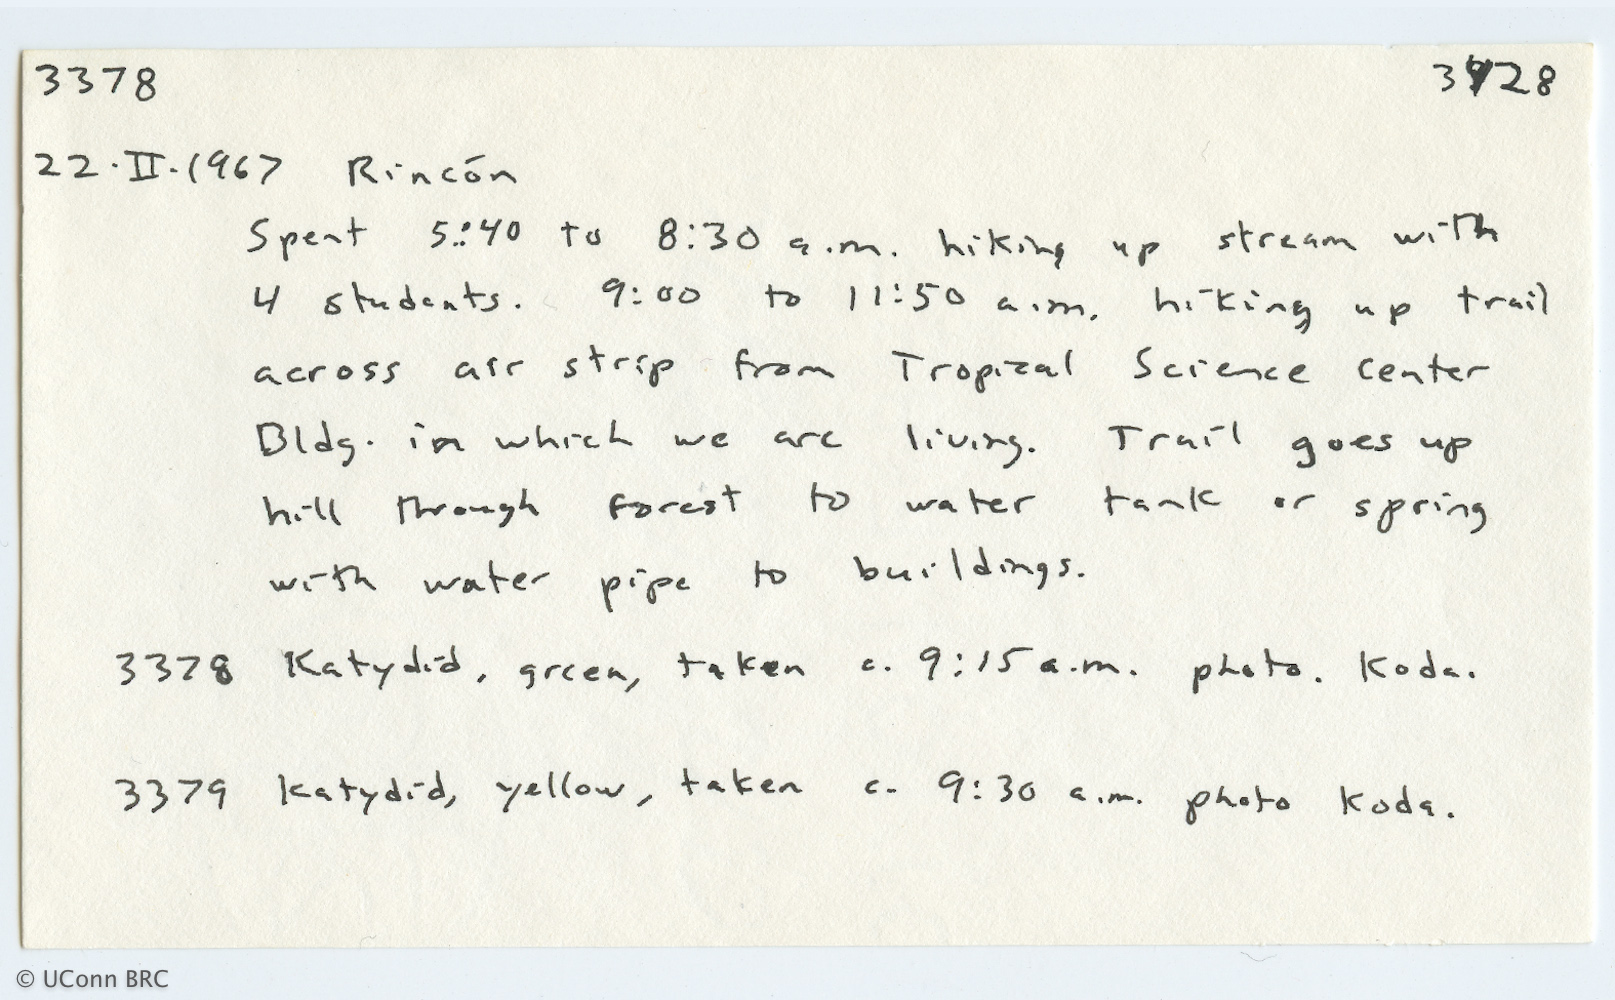 3378
22·II·1967 Rincón
Spent 5:40 to 8:30 a.m. hiking up stream with
4 students. 9:00 to 11:50 a.m. hiking up trail
across air strip from Tropical Science Center
Bldg. in which we are living. Trail goes up
hill through forest to water tank or spring
with water pipe to buildings.
3378 Katydid, green, taken c. 9:15 a.m. photo. Koda.
3379 Katydid, yellow, taken c. 9:30 a.m. photo Koda.
© UConn BRC